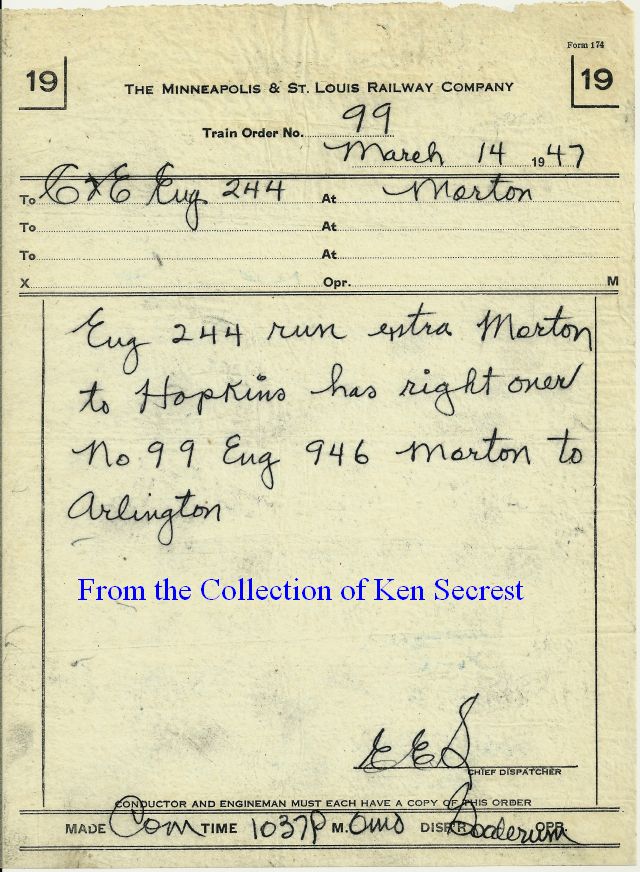 Form 174
19 19
THE MINNEAPOLIS & ST. LOUIS RAILWAY COMPANY
Train Order No. 99
March 14 1947
To C&E Eng 244 At Morton
To At
To At
X Opr. M
Eng 244 run extra Morton
to Hopkins has right over
No 99 Eng 946 Morton to
Arlington
From the Collection of Ken Secrest
EES
CHIEF DISPATCHER
CONDUCTOR AND ENGINEMAN MUST EACH HAVE A COPY OF THIS ORDER
MADE Com TIME 1037P M. DISP'R OPR.